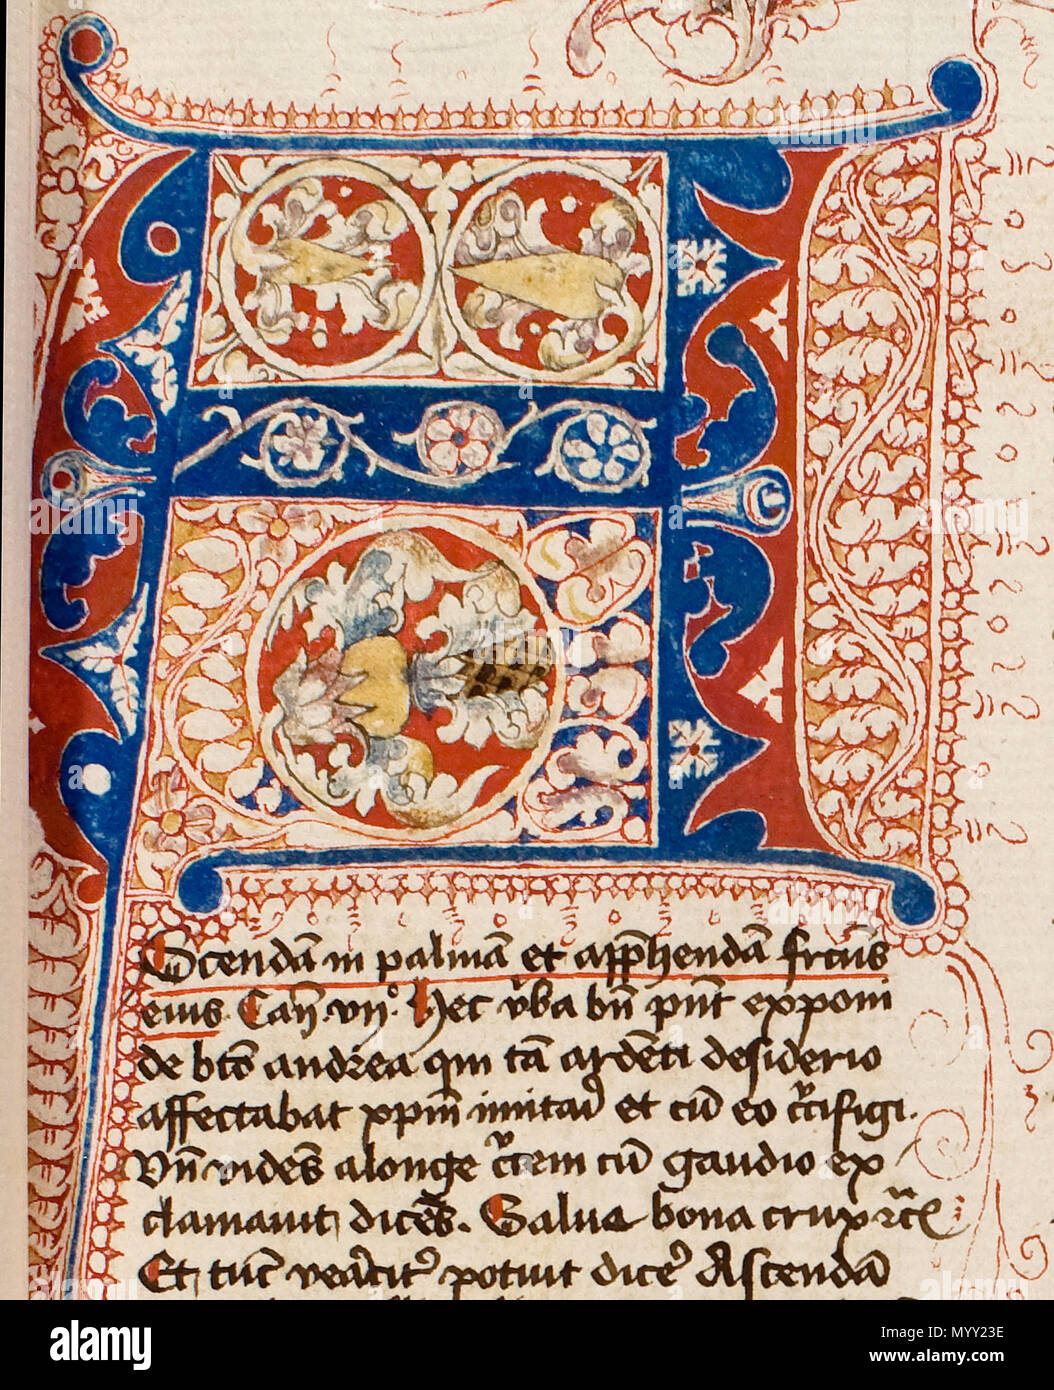 A
Scendā in palmā et appħendā frcūs
eius. Cań. vij°. Hec ṽba bn̄ pn̄t exponi
de bto andrea qui tā ardēti desiderio
affectabat xpm̄ imitari et cū eo crucifigi.
Vn̄ videns a longe crucem cū gaudio ex
clamavit dicēs. Salue bona crux rc̄
Et tūc veraciter potuit dicere Ascendā
alamy
Image ID: MYY23E
www.alamy.com